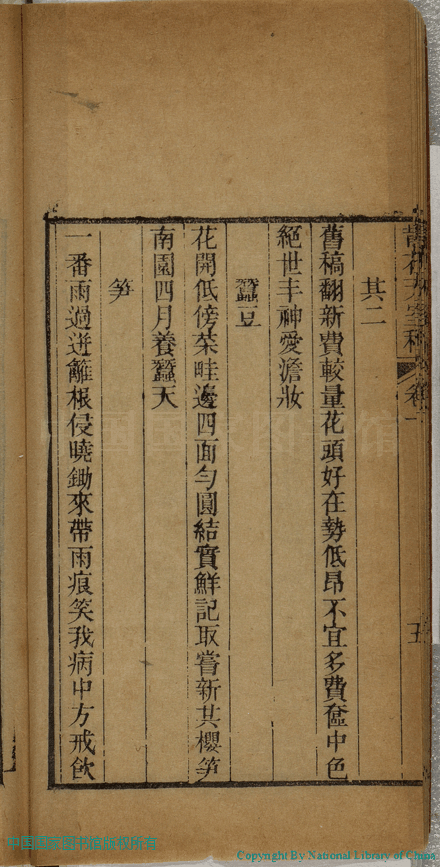 其二
舊稿翻新費較量花頭好在勢低昂不宜多費奩中色
絕世丰神愛澹妝
蠶豆
花開低傍菜畦邊四面勻圓結實鮮記取嘗新其櫻笋
南園四月養蠶天
笋
一番雨過迸籬根侵曉鋤來帶雨痕笑我病中方戒飲
五
Copyright By National Library of China